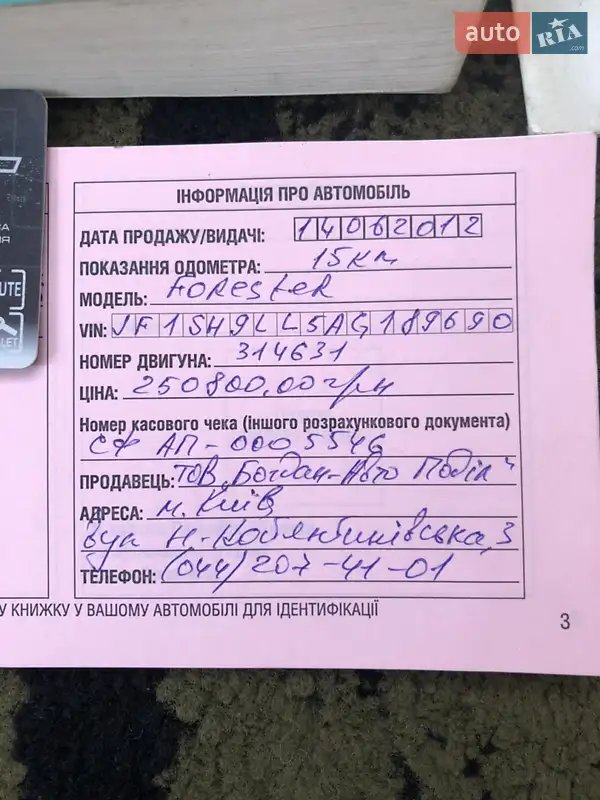 auto RIA .com
ІНФОРМАЦІЯ ПРО АВТОМОБІЛЬ
ДАТА ПРОДАЖУ/ВИДАЧІ: 14062012
ПОКАЗАННЯ ОДОМЕТРА: 15км
МОДЕЛЬ: Forester
VIN: JF1SH9LL5AG189690
НОМЕР ДВИГУНА: 314631
ЦІНА: 250800,00грн
Номер касового чека (іншого розрахункового документа)
СФ АП-0005546
ПРОДАВЕЦЬ: ТОВ „Богдан-Авто Поділ“
АДРЕСА: м. Київ
вул Н-
ська, 3
ТЕЛЕФОН: (044) 207-41-01
У КНИЖКУ У ВАШОМУ АВТОМОБІЛІ ДЛЯ ІДЕНТИФІКАЦІЇ
3